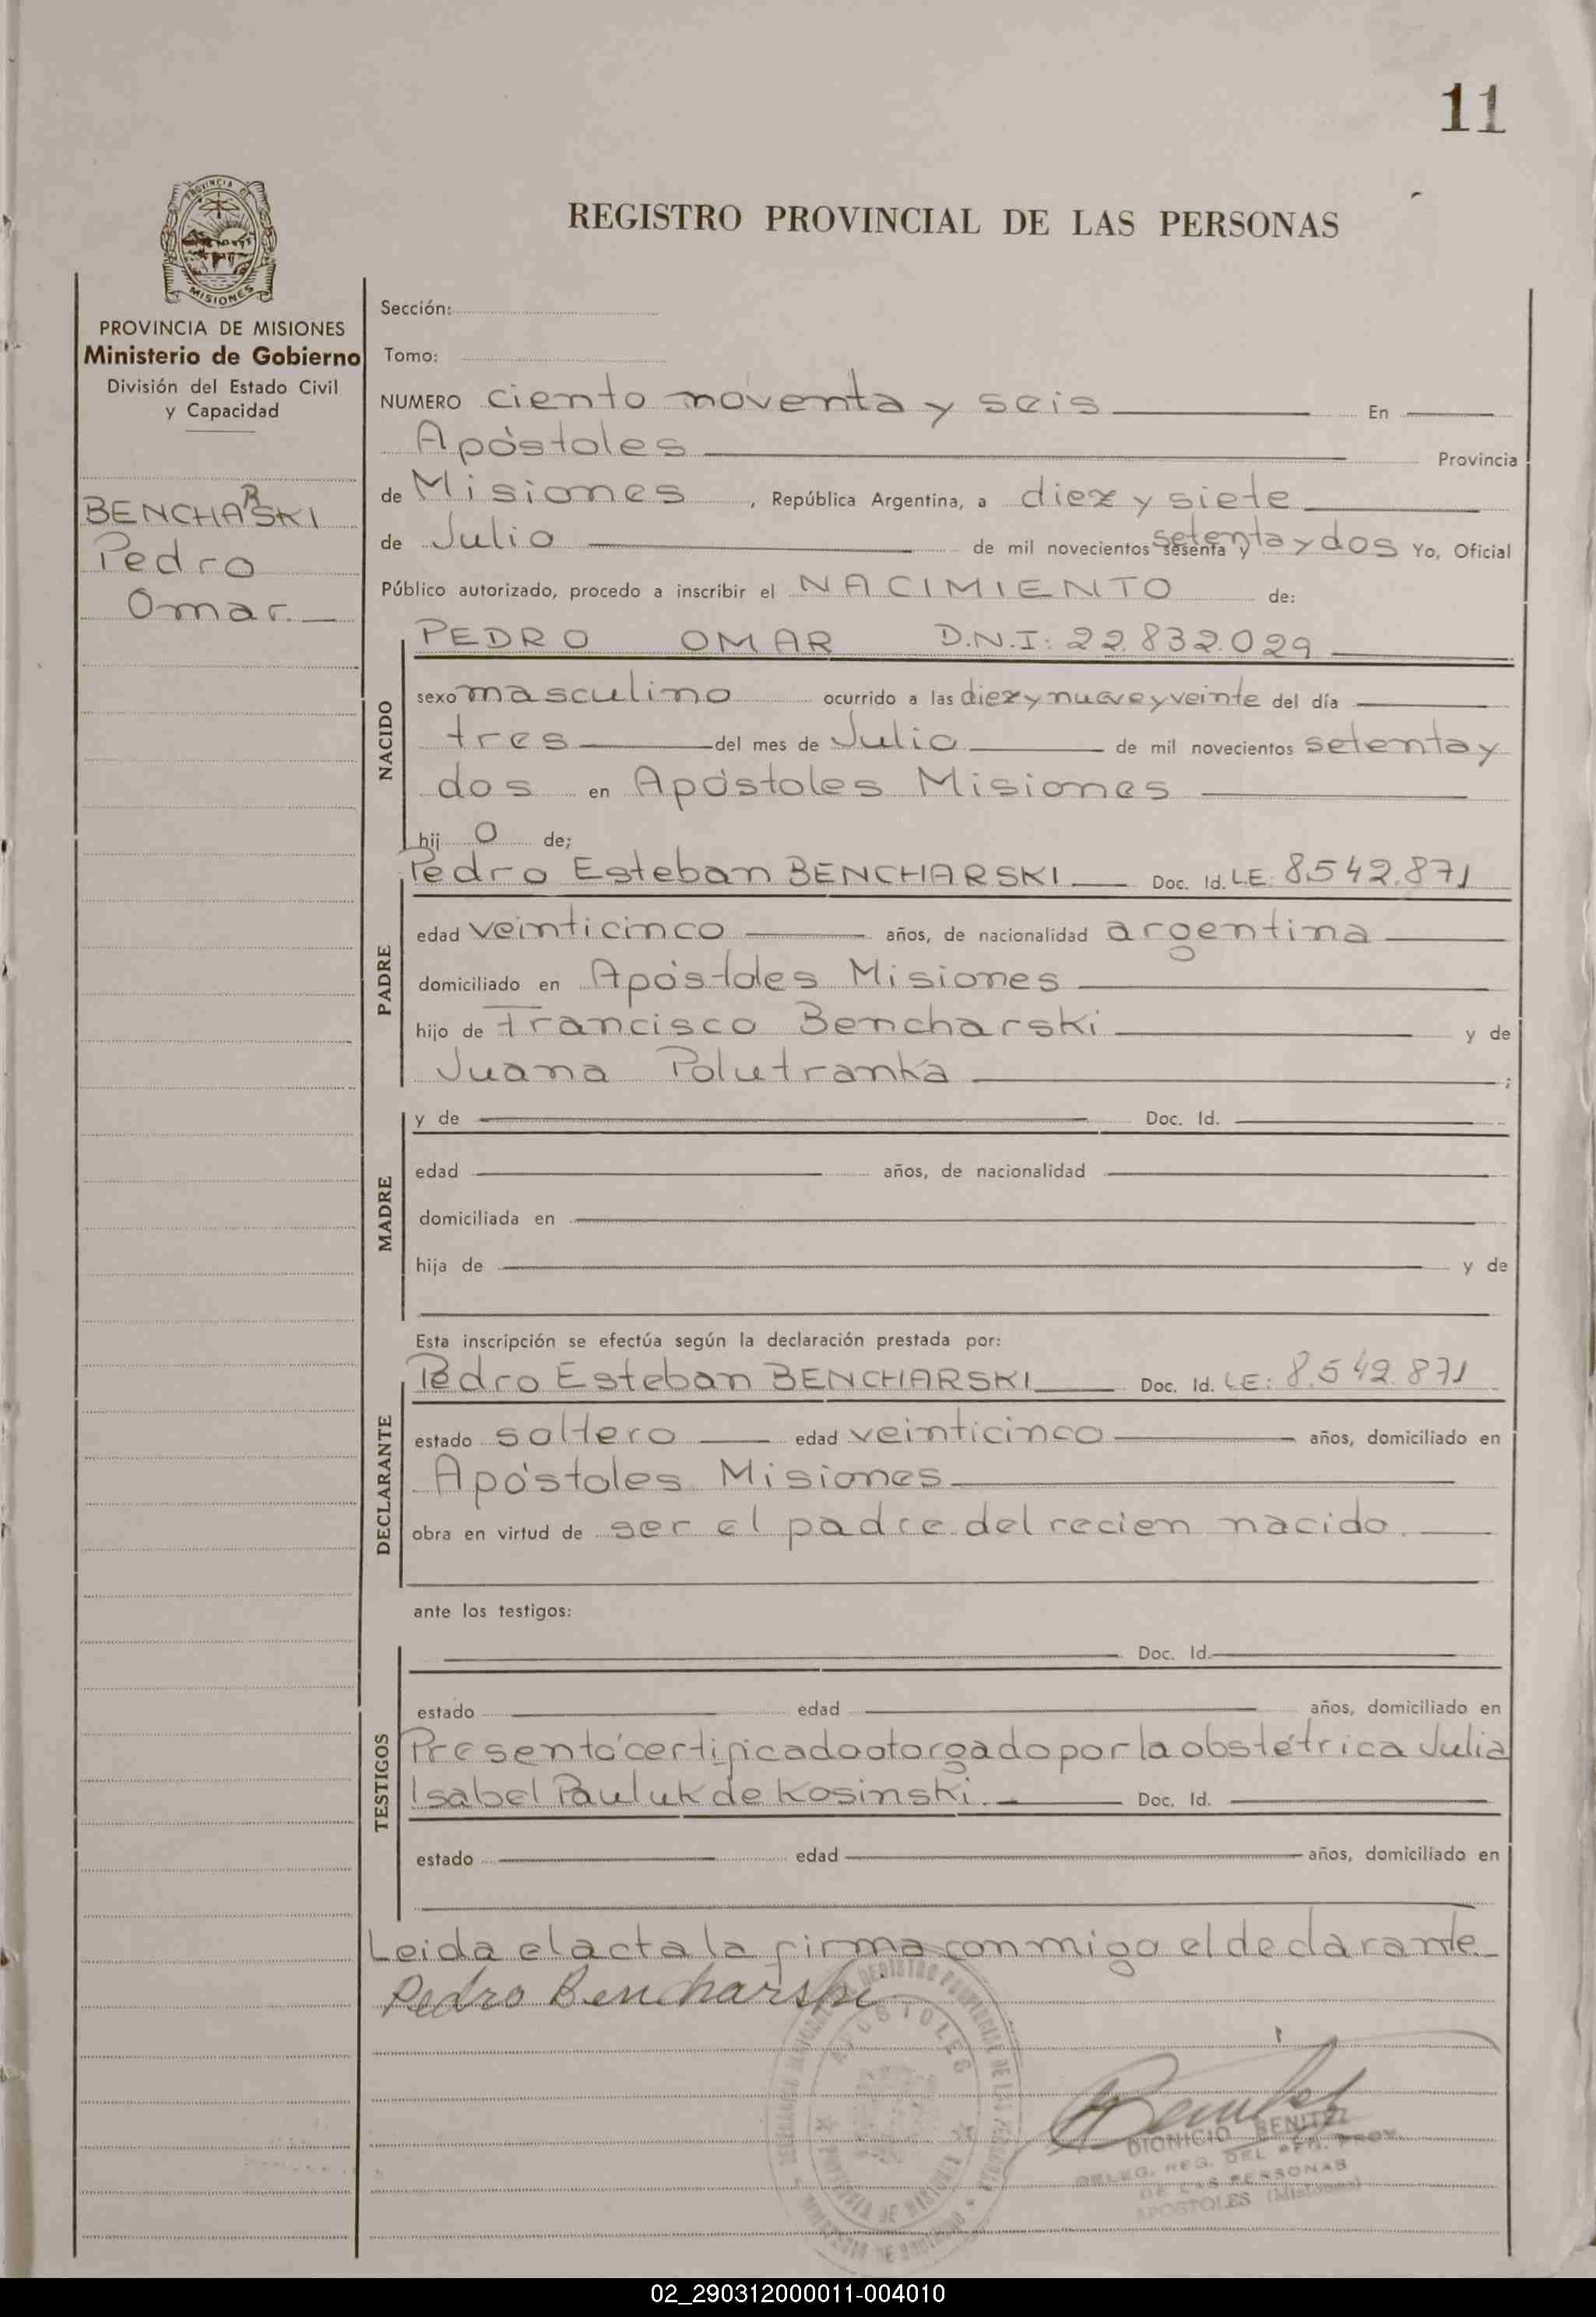 11
PROVINCIA DE
MISIONES
REGISTRO PROVINCIAL DE LAS PERSONAS
PROVINCIA DE MISIONES
Ministerio de Gobierno
División del Estado Civil
y Capacidad
BENCHARSKI
Pedro
Omar.
Sección:
Tomo:
NUMERO ciento noventa y seis En
Apóstoles Provincia
de Misiones, República Argentina, a diez y siete
de Julio de mil novecientos sesenta y setenta y dos Yo, Oficial
Público autorizado, procedo a inscribir el NACIMIENTO de:
NACIDO
PEDRO OMAR D.N.I: 22.832.029
sexo masculino ocurrido a las diez y nueve y veinte del día
tres del mes de Julio de mil novecientos setenta y
dos en Apóstoles Misiones
hij o de;
PADRE
Pedro Esteban BENCHARSKI Doc. Id. L.E: 8.542.871
edad veinticinco años, de nacionalidad argentina
domiciliado en Apóstoles Misiones
hijo de Francisco Bencharski y de
Juana Polutranka ;
MADRE
y de Doc. Id.
edad años, de nacionalidad
domiciliada en
hija de y de
Esta inscripción se efectúa según la declaración prestada por:
DECLARANTE
Pedro Esteban BENCHARSKI Doc. Id. L.E: 8.542.871
estado soltero edad veinticinco años, domiciliado en
Apóstoles Misiones
obra en virtud de ser el padre del recien nacido.
ante los testigos:
TESTIGOS
Doc. Id.
estado edad años, domiciliado en
Presentó certificado otorgado por la obstétrica Julia
Isabel Pauluk de Kosinski. Doc. Id.
estado edad años, domiciliado en
Leida el acta la firma conmigo el declarante
Pedro Bencharski
REGISTRO PROVINCIAL DE LAS PERSONAS
APOSTOLES
PROVINCIA DE MISIONES
MINISTERIO DE GOBIERNO
DIONICIO BENITEZ
DELEG. REG. DEL REG. PROV.
DE LAS PERSONAS
APOSTOLES (Misiones)
02_290312000011-004010